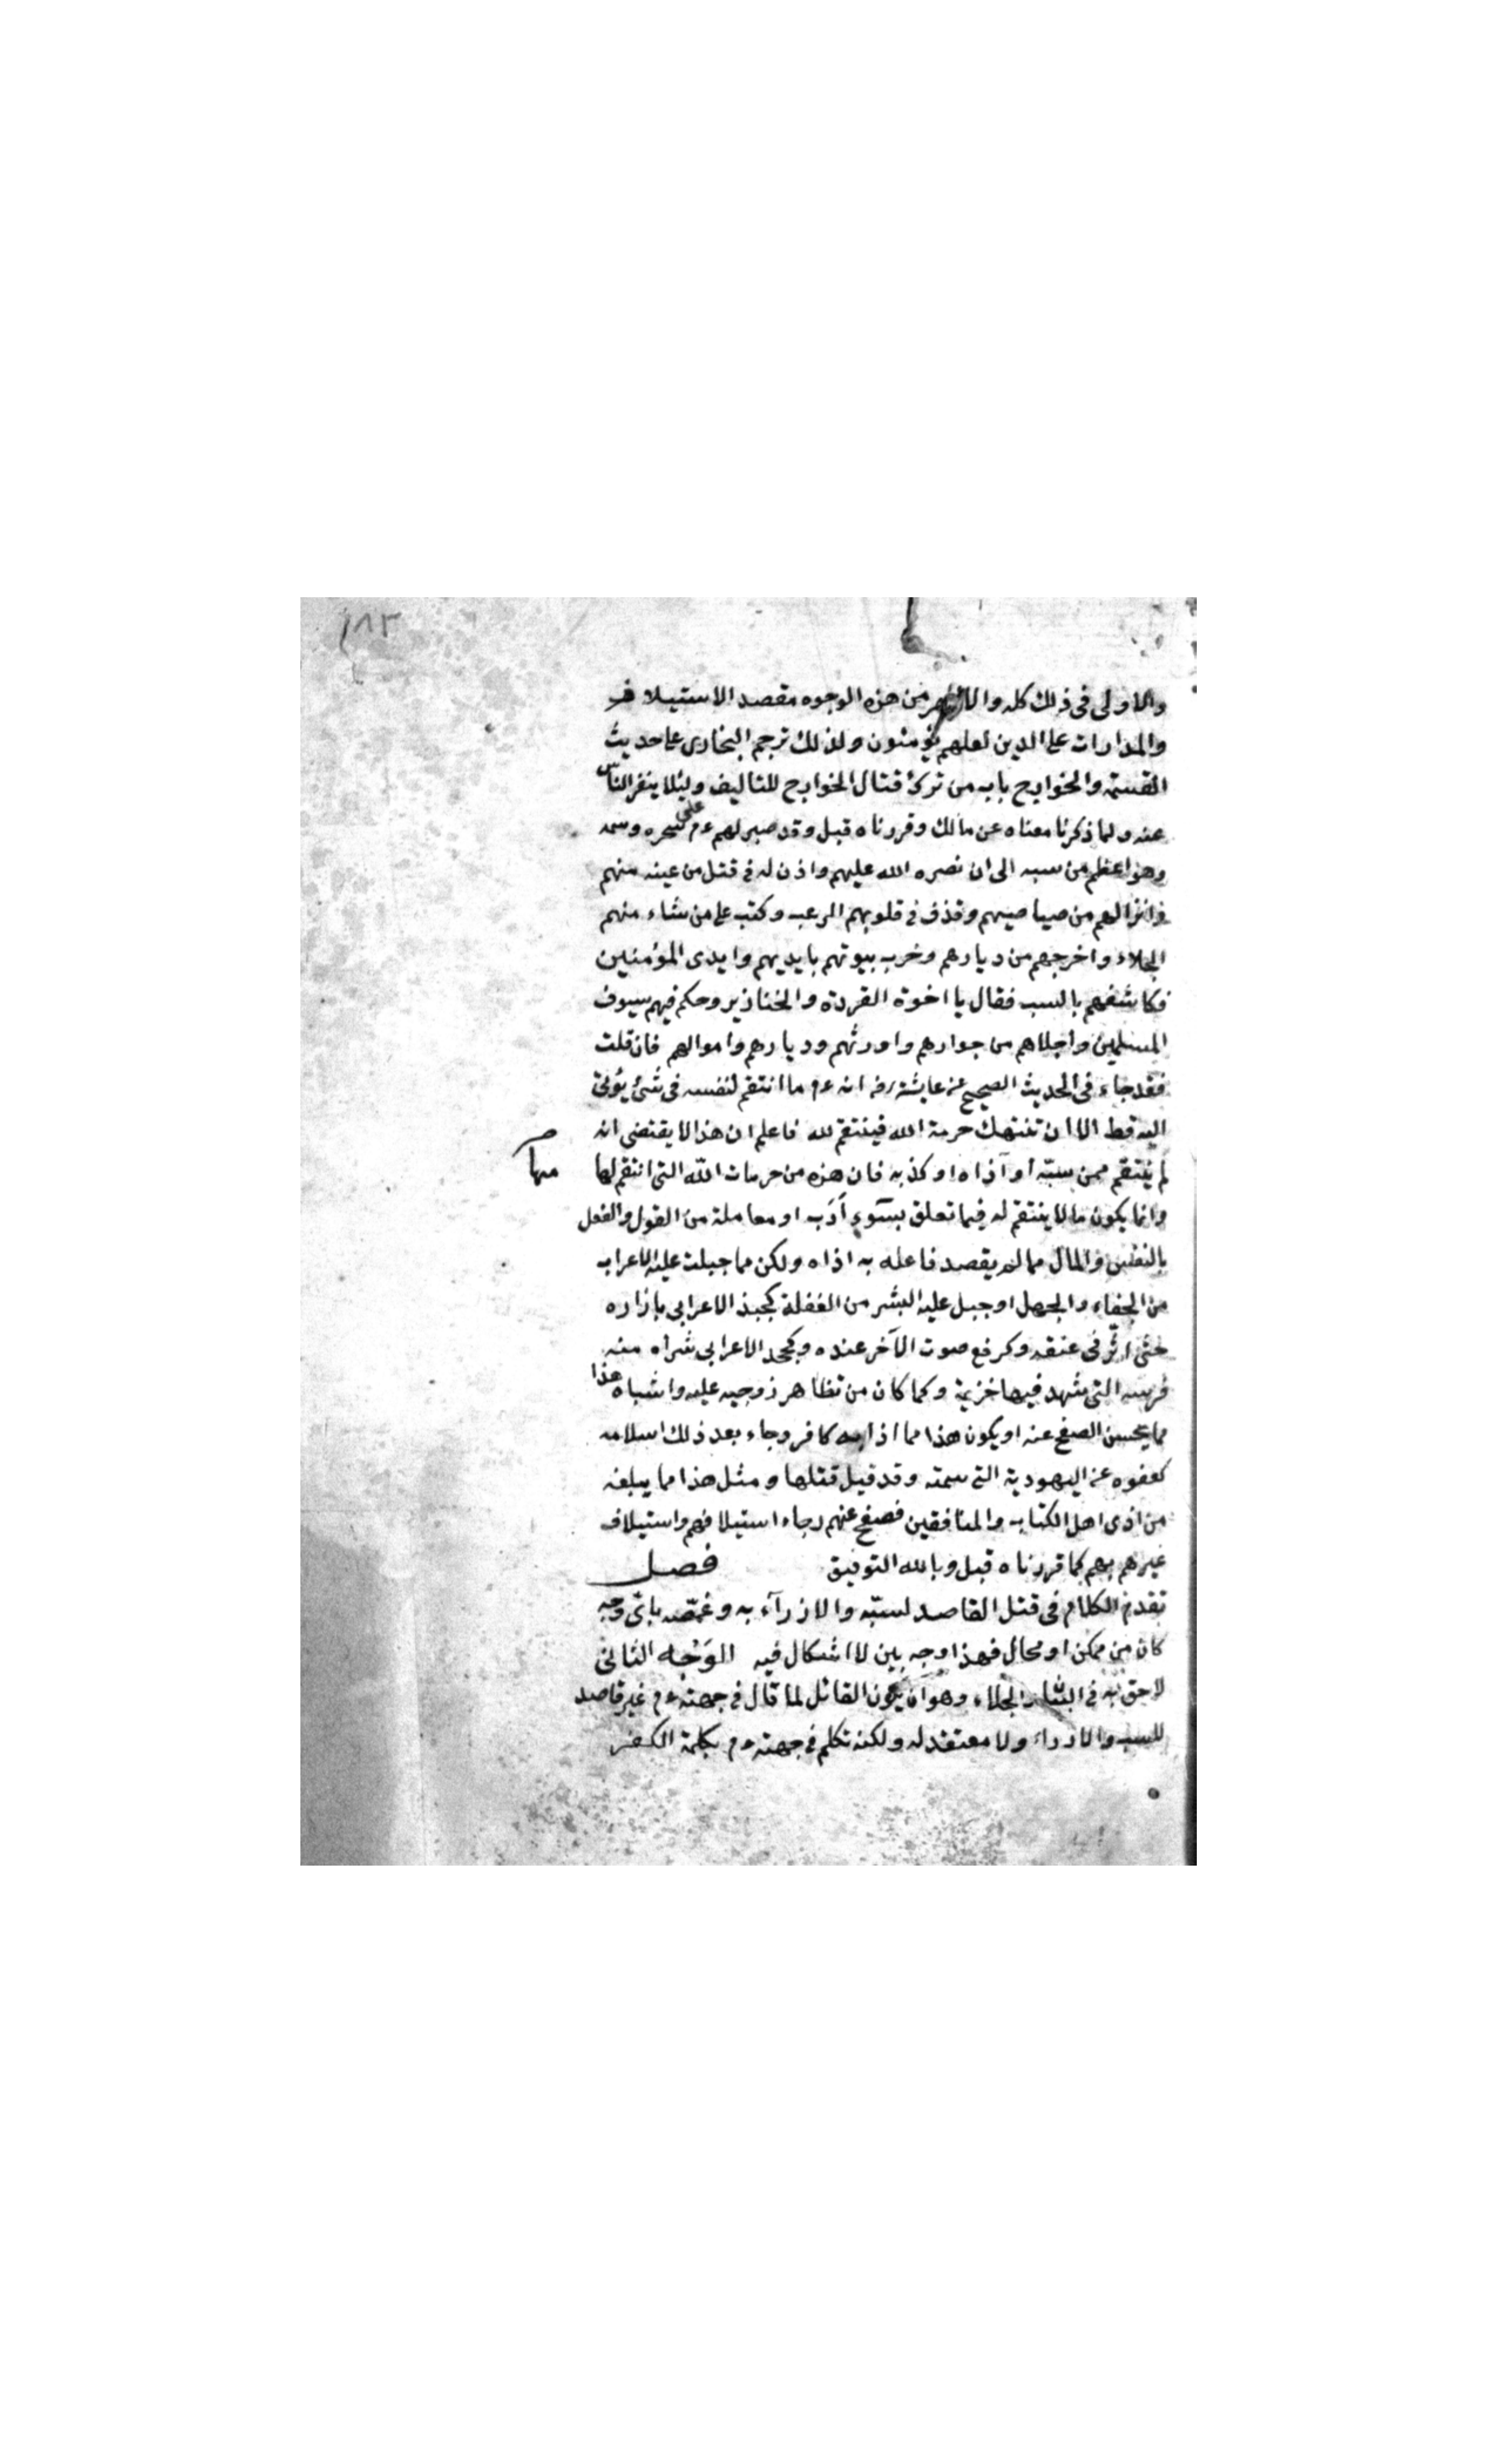 ١٨٣
والاولى فى ذلك كله والاظهر من هذه الوجوه مقصد الاستيلاف
والمدارات على الدين لعلهم يؤمنون ولذلك ترجم البخارى على حديث
القسمة والخوارج باب من ترك قتال الخوارج للتاليف ولئلا ينفر الناس
عنه ولما ذكرنا معناه عن مالك وقررناه قبل وقد صبر لهم ءم على سحره وسمه
وهو اعظم من سبه الى ان نصره الله عليهم واذن له فى قتل من عينه منهم
وانزالهم من صياصيهم وقذف فى قلوبهم الرعب وكتب على من شاء منهم
الجلاء واخرجهم من ديارهم وخرب بيوتهم بايديهم وايدى المؤمنين
فكاشفهم بالسب فقال يا اخوة القردة والخنازير وحكم فيهم سيوف
المسلمين واجلاهم من جوارهم واورثهم وديارهم واموالهم فان قلت
فقد جاء فى الحديث الصحيح عن عايشة رضه انه ءم ما انتقم لنفسه فى شئ يؤتى
اليه قط الا ان تنتهك حرمة الله فينتقم لله فاعلم ان هذا لا يقتضى انه
لم ينتقم ممن سبّه او آذاه او كذبه فان هذه من حرمات الله التى انتقم لها
وانما يكون مالا ينتقم له فيما تعلق بسوء أدب او معاملة من القول والفعل
بالنفس والمال مما لم يقصد فاعله به اذاه ولكن مما جبلت عليه الاعراب
من الجفاء والجهل او جبل عليه البشر من الغفلة كجبذ الاعرابى بازاره
حتى اثّر فى عنقه وكرفع صوت الآخر عنده وكجحد الاعرابى شرأه منه
فرسه التى شهد فيها خزيمة وكما كان من تظاهر زوجيه عليه واشباه هذا
مما يحسن الصفح عنه او يكون هذا مما اذا به كافر وجاء بعد ذلك اسلامه
كعفوه عن اليهودية التى سمته وقد قيل قتلها ومثل هذا مما يبلغه
من اذى اهل الكتاب والمنافقين فصفح عنهم رجاء استيلافهم واستيلاف
غيرهم بهم كما قررناه قبل وبالله التوفيق فصل
تقدم الكلام فى قتل القاصد لسبّه والازرآء به وغمصه باىّ وجه
كان من ممكن او محال فهذا وجه بين لا اشكال فيه الوَجْه الثانى
لاحق به فى البيان والجلاء وهو ان يكون القائل لما قال فى جهته ءم غير قاصد
للسب والازراء ولا معتقد له ولكنه تكلم فى جهته ءم بكلمة الكفر